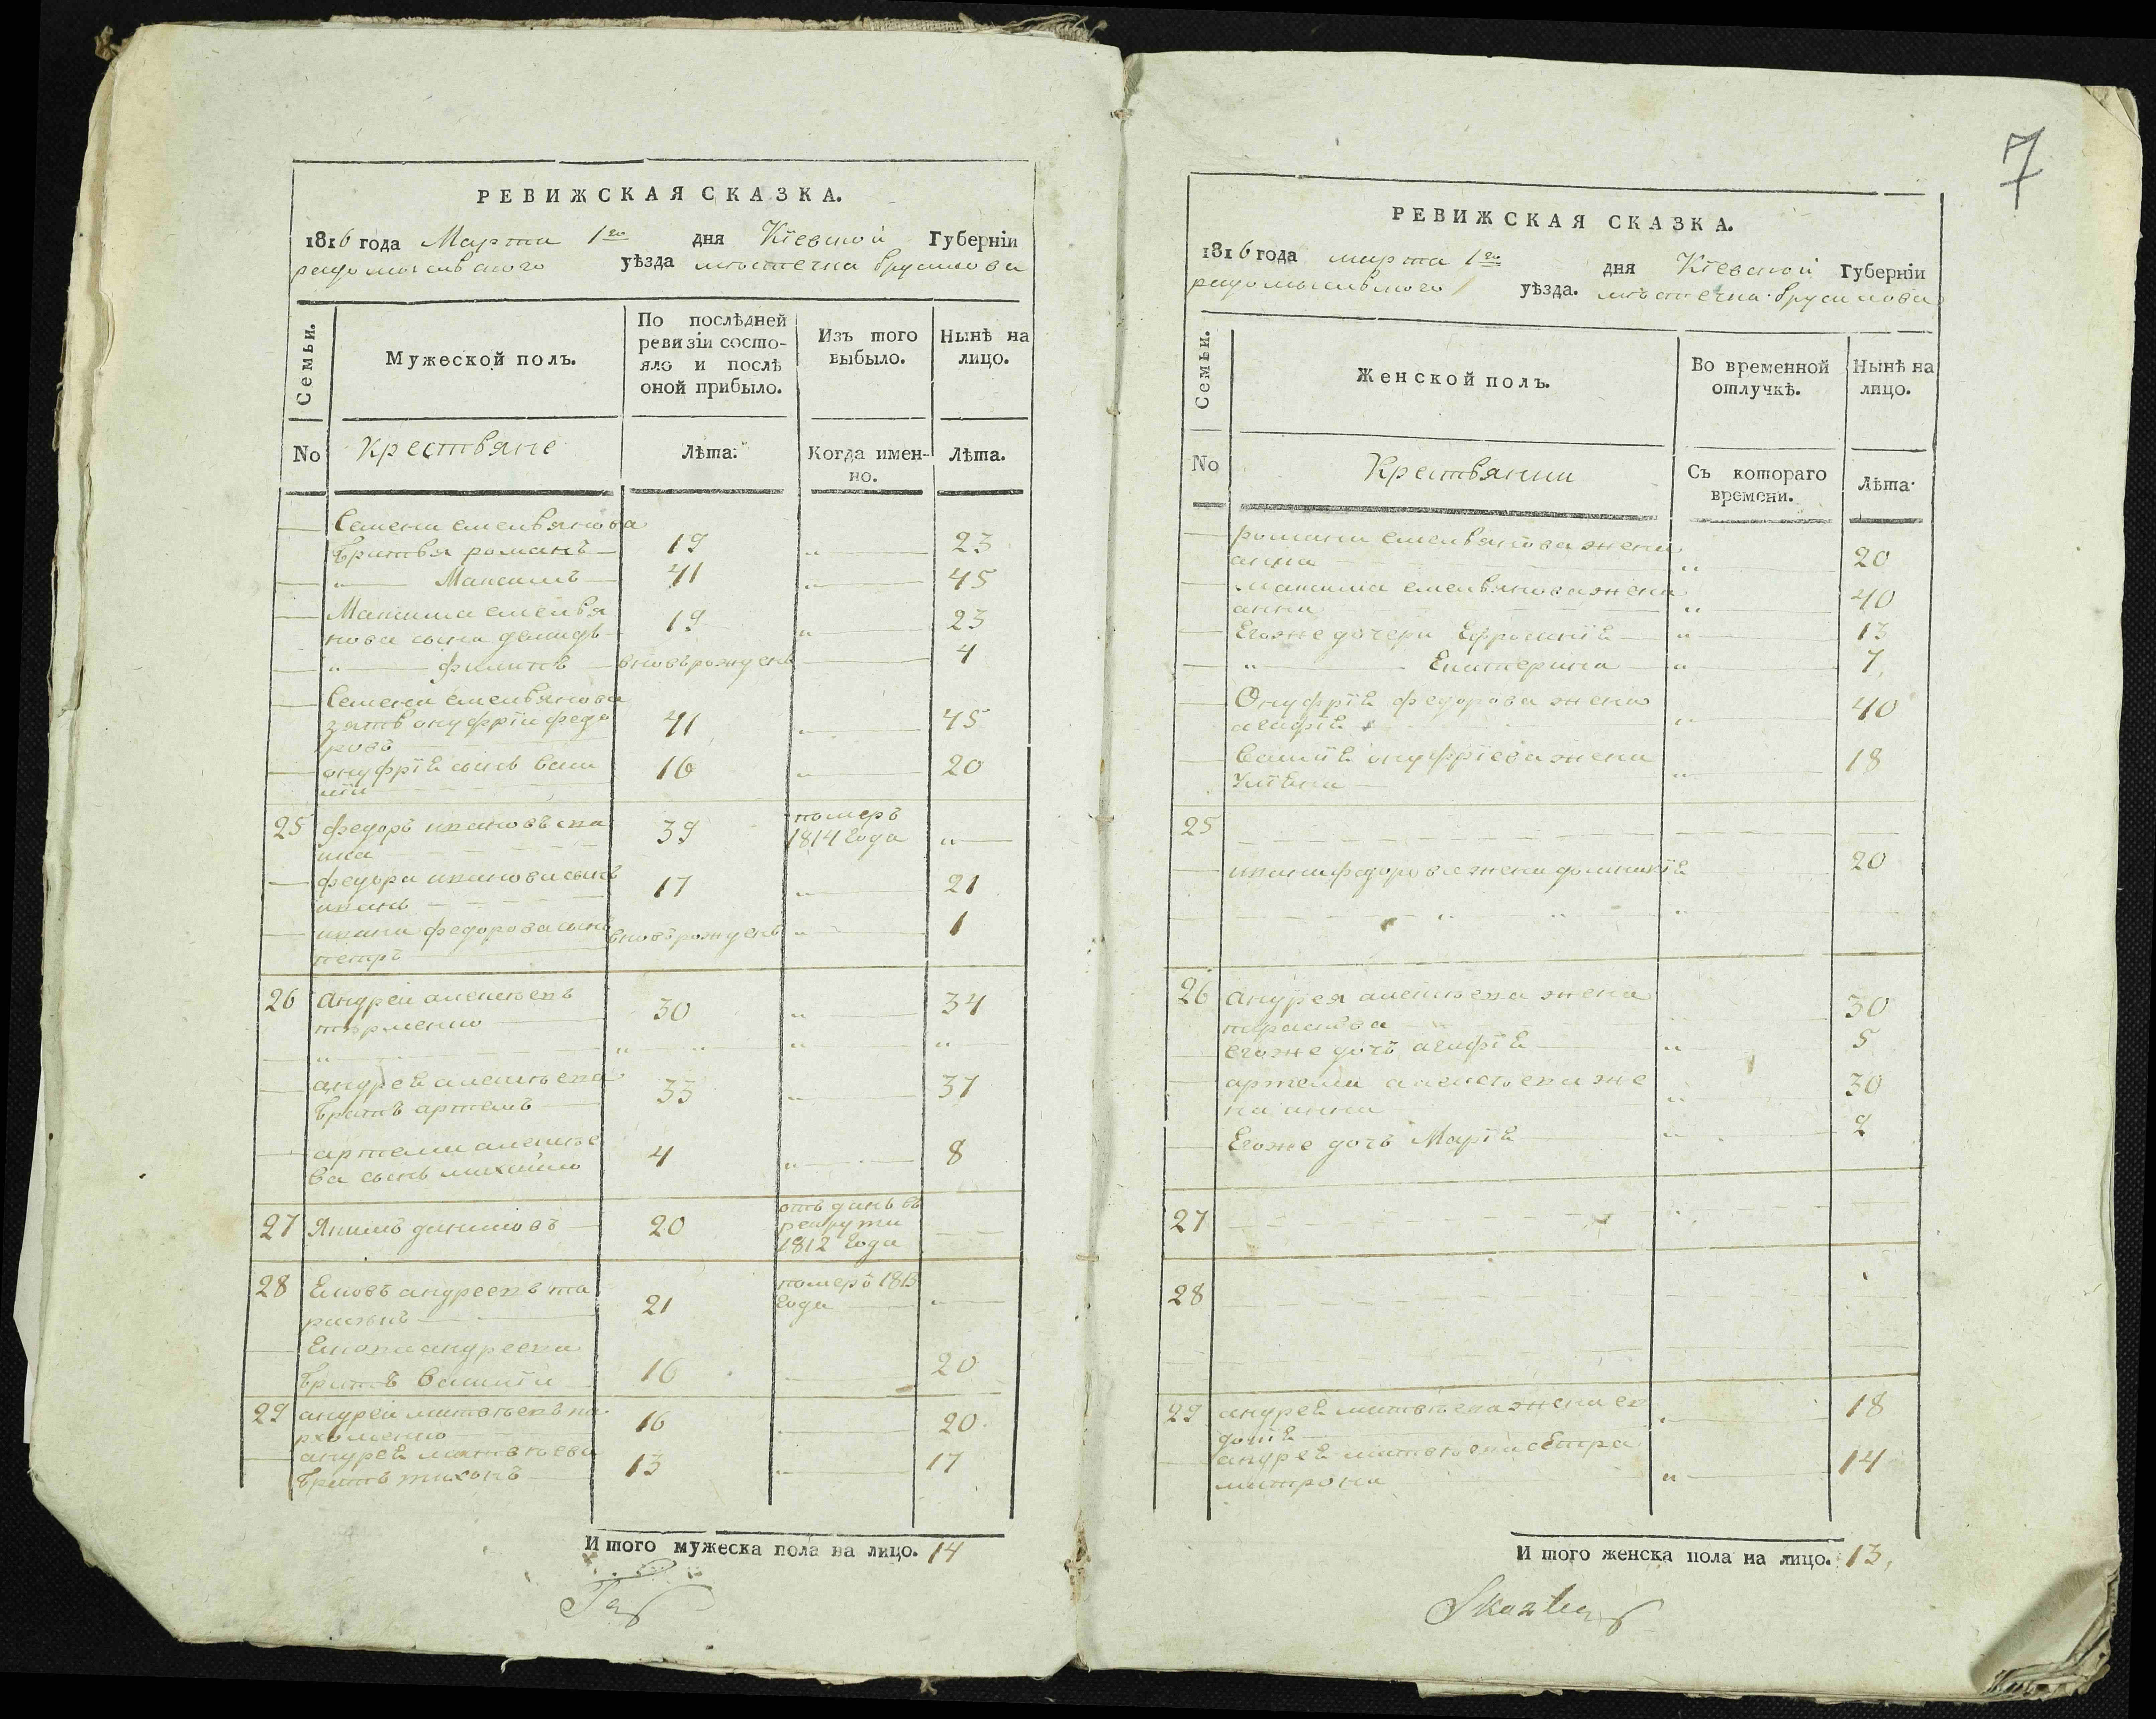 РЕВИЖСКАЯ СКАЗКА.
1816 года Марта 1го дня Кіевской Губерніи
радомысльского уѣзда мѣстечка брусилова
Семьи.
Мужеской полъ.
По послѣдней ревизіи состояло и послѣ оной прибыло.
Изъ того выбыло.
Нынѣ на лицо.
No Крестьяне Лѣта. Когда именно. Лѣта.
Семена емельянова
братья романъ 19 „ 23
„ Максимъ 41 „ 45
Максима емелья
нова сына демидъ 19 „ 23
„ филипъ вновьрожденъ 4
Семена емельянова
зять онуфрій федо
ровъ 41 „ 45
онуфрія сынъ васи
лій 16 „ 20
25 федоръ ивановъ
39 померъ 1814 года „
федора иванова сынъ
иванъ 17 „ 21
ивана федорова сынъ
петръ вновьрожденъ „ 1
26 Андрей алексѣевъ
30 „ 34
„ „ „ „ „
андрея алексѣева
братъ артемъ 33 „ 37
артема алексѣе
ва сынъ михайло 4 „ 8
27 Якимъ даниловъ 20 отъданъ въ рекруты 1812 года
28 андреевъ та
21 померъ 1813 года „
андреева
братъ василій 16 20
29 андрей матвѣевъ па
рхоменко 16 20
андрея матвѣева
братъ тихонъ 13 17
Итого мужеска пола на лицо. 14
7
РЕВИЖСКАЯ СКАЗКА.
1816 года марта 1го дня Кіевской Губерніи
радомысльского уѣзда. мѣстечка брусилова
Семьи.
Женской полъ.
Во временной отлучкѣ.
Нынѣ на лицо.
No Крестьянки Съ котораго времени. Лѣта.
романа емельянова жена
анна „ 20
максима емельянова жена
анна „ 40
Егоже дочери Ефросинія „ 13
„ Екатерина „ 7
Онуфрія федорова жена
агафія „ 40
василія онуфріева жена
Уліяна „ 18
25
ивана федорова жена домникія 20
„ „ „
26 андрея алексѣева жена
параскева 30
егоже дочь агафія „ 5
артема алексѣева же
на анна „ 30
Егоже дочь Марія „ 2
27
28
29 андрея матвѣева жена ев
докія „ 18
андрея матвѣева сестра
матрона „ 14
Итого женска пола на лицо. 13.